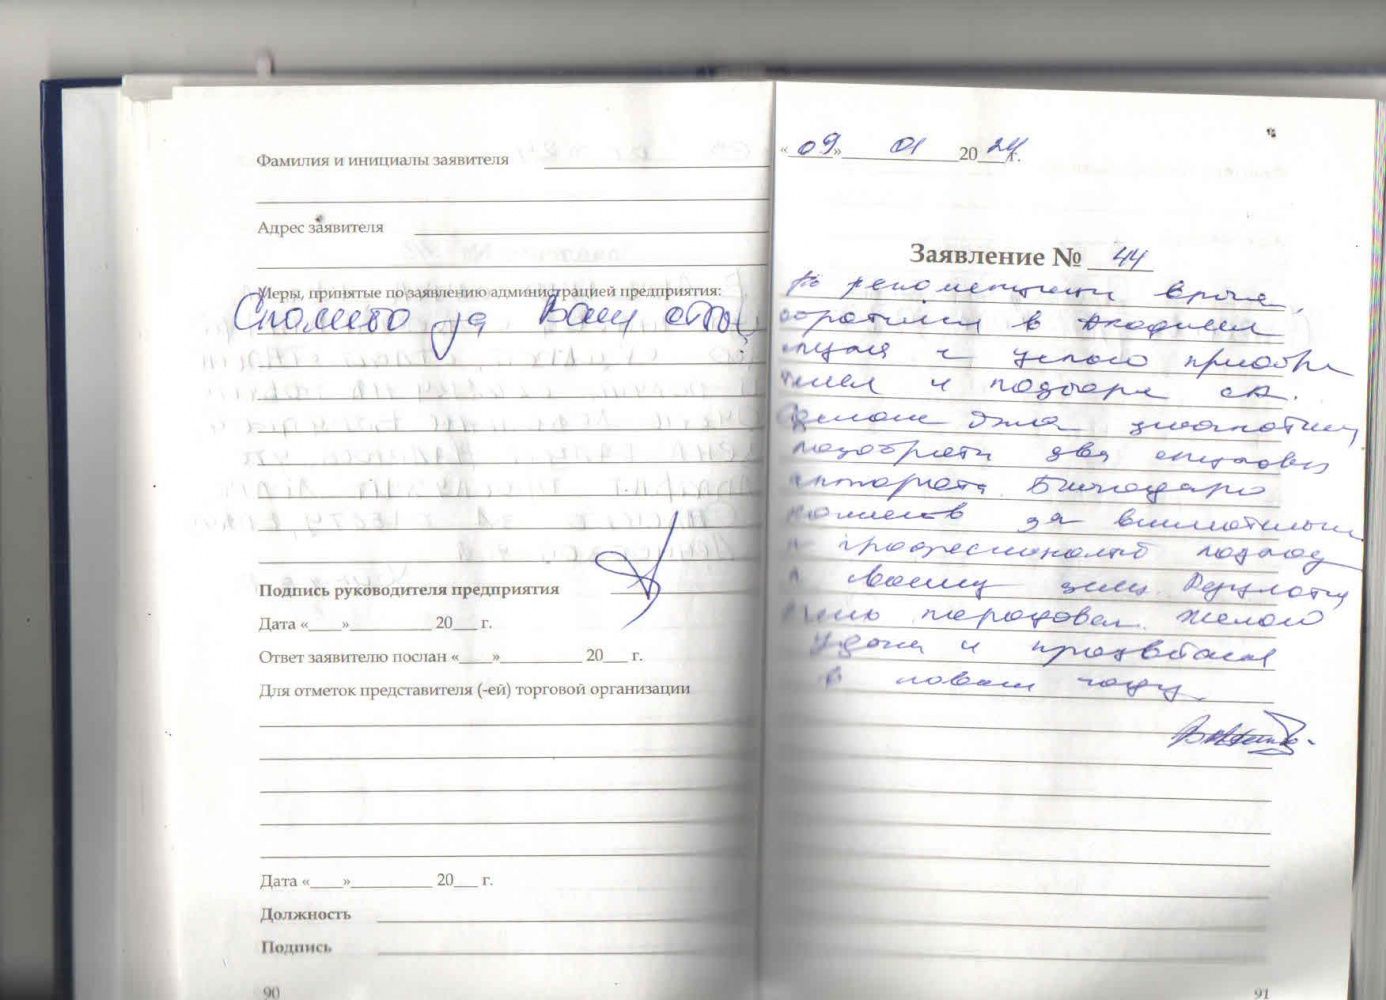 Фамилия и инициалы заявителя
Адрес заявителя
Меры, принятые по заявлению администрацией предприятия:
Спасибо за Ваш отзыв
Подпись руководителя предприятия
Дата «____»__________ 20___ г.
Ответ заявителю послан «____»__________ 20___ г.
Для отметок представителя (-ей) торговой организации
Дата «____»__________ 20___ г.
Должность
Подпись
90
«09» 01 2024 г.
Заявление № 44
По рекомендации врача,
обратились в Академию
слуха с целью приобре
тения и подбора СА.
Сделали диагностику
подобрали два слуховых
аппарата. Благодарю
за внимательный
и профессиональный подход
к своему делу. Результат
очень порадовал. Желаю
удачи и процветания
в новом году.
91